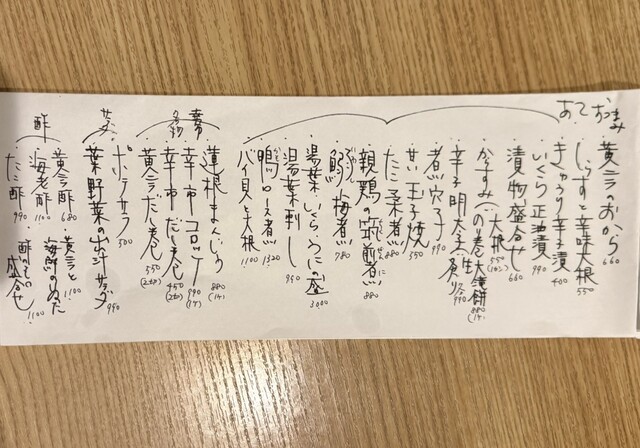 あて おつまみ
黄ニラのおから 660
しらすと辛味大根 550
きゅうり辛子漬 400
いくら正油漬 990
漬物盛合せ 660
からすみ 大根 550
のり巻大鏡餅 880 (1ケ)
辛子明太子 生 炙り 各990
煮穴子 990
甘い玉子焼 550
たこ柔煮 880
親鶏の筑前煮 880
鰯梅煮 780
湯葉いくらうにの盛 3000
湯葉刺し 950
鴨ロース煮 1320
バイ貝と大根 1100
幸市 名物
蓮根まんじう 880 (1ケ)
幸市コロッケ 990 (1ケ)
幸市だし巻 450
黄ニラだし巻 550
サラダ
ポテサラ 500
葉野菜の出汁サラダ 990
酢
黄ニラ酢 680
海老酢 1100
たこ酢 990
黄ニラと海鮮のぬた 1100
酢のもの盛合せ 1100